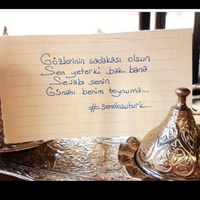 Gözlerinin sadakası olsun
Sen yeterki bak bana
Sevabı senin
Günahı benim boynuma...